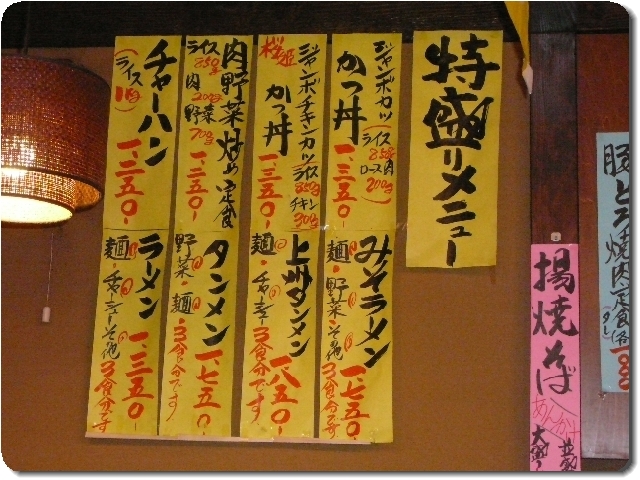 特盛りメニュー
ジャンボカツ
かつ丼
ライス
850g
ロース肉
200g
一、三五〇-
桜姫
ジャンボチキンカツ
かつ丼
ライス
850g
チキン
300g
一、三五〇-
肉野菜炒め定食
ライス
850g
肉
200g
野菜
70g
一、二五〇-
チャーハン
一、二五〇-
みそラーメン
麺・野菜・その他
3食分です
一、七五〇-
上州タンメン
麺・チャーシュー
3食分です
一、八五〇-
タンメン
野菜・麺・3食分です
一、七五〇-
ラーメン
麺・チャーシューその他
3食分です
一、三五〇-
揚焼そば
あんかけ
豚とろ焼肉定食